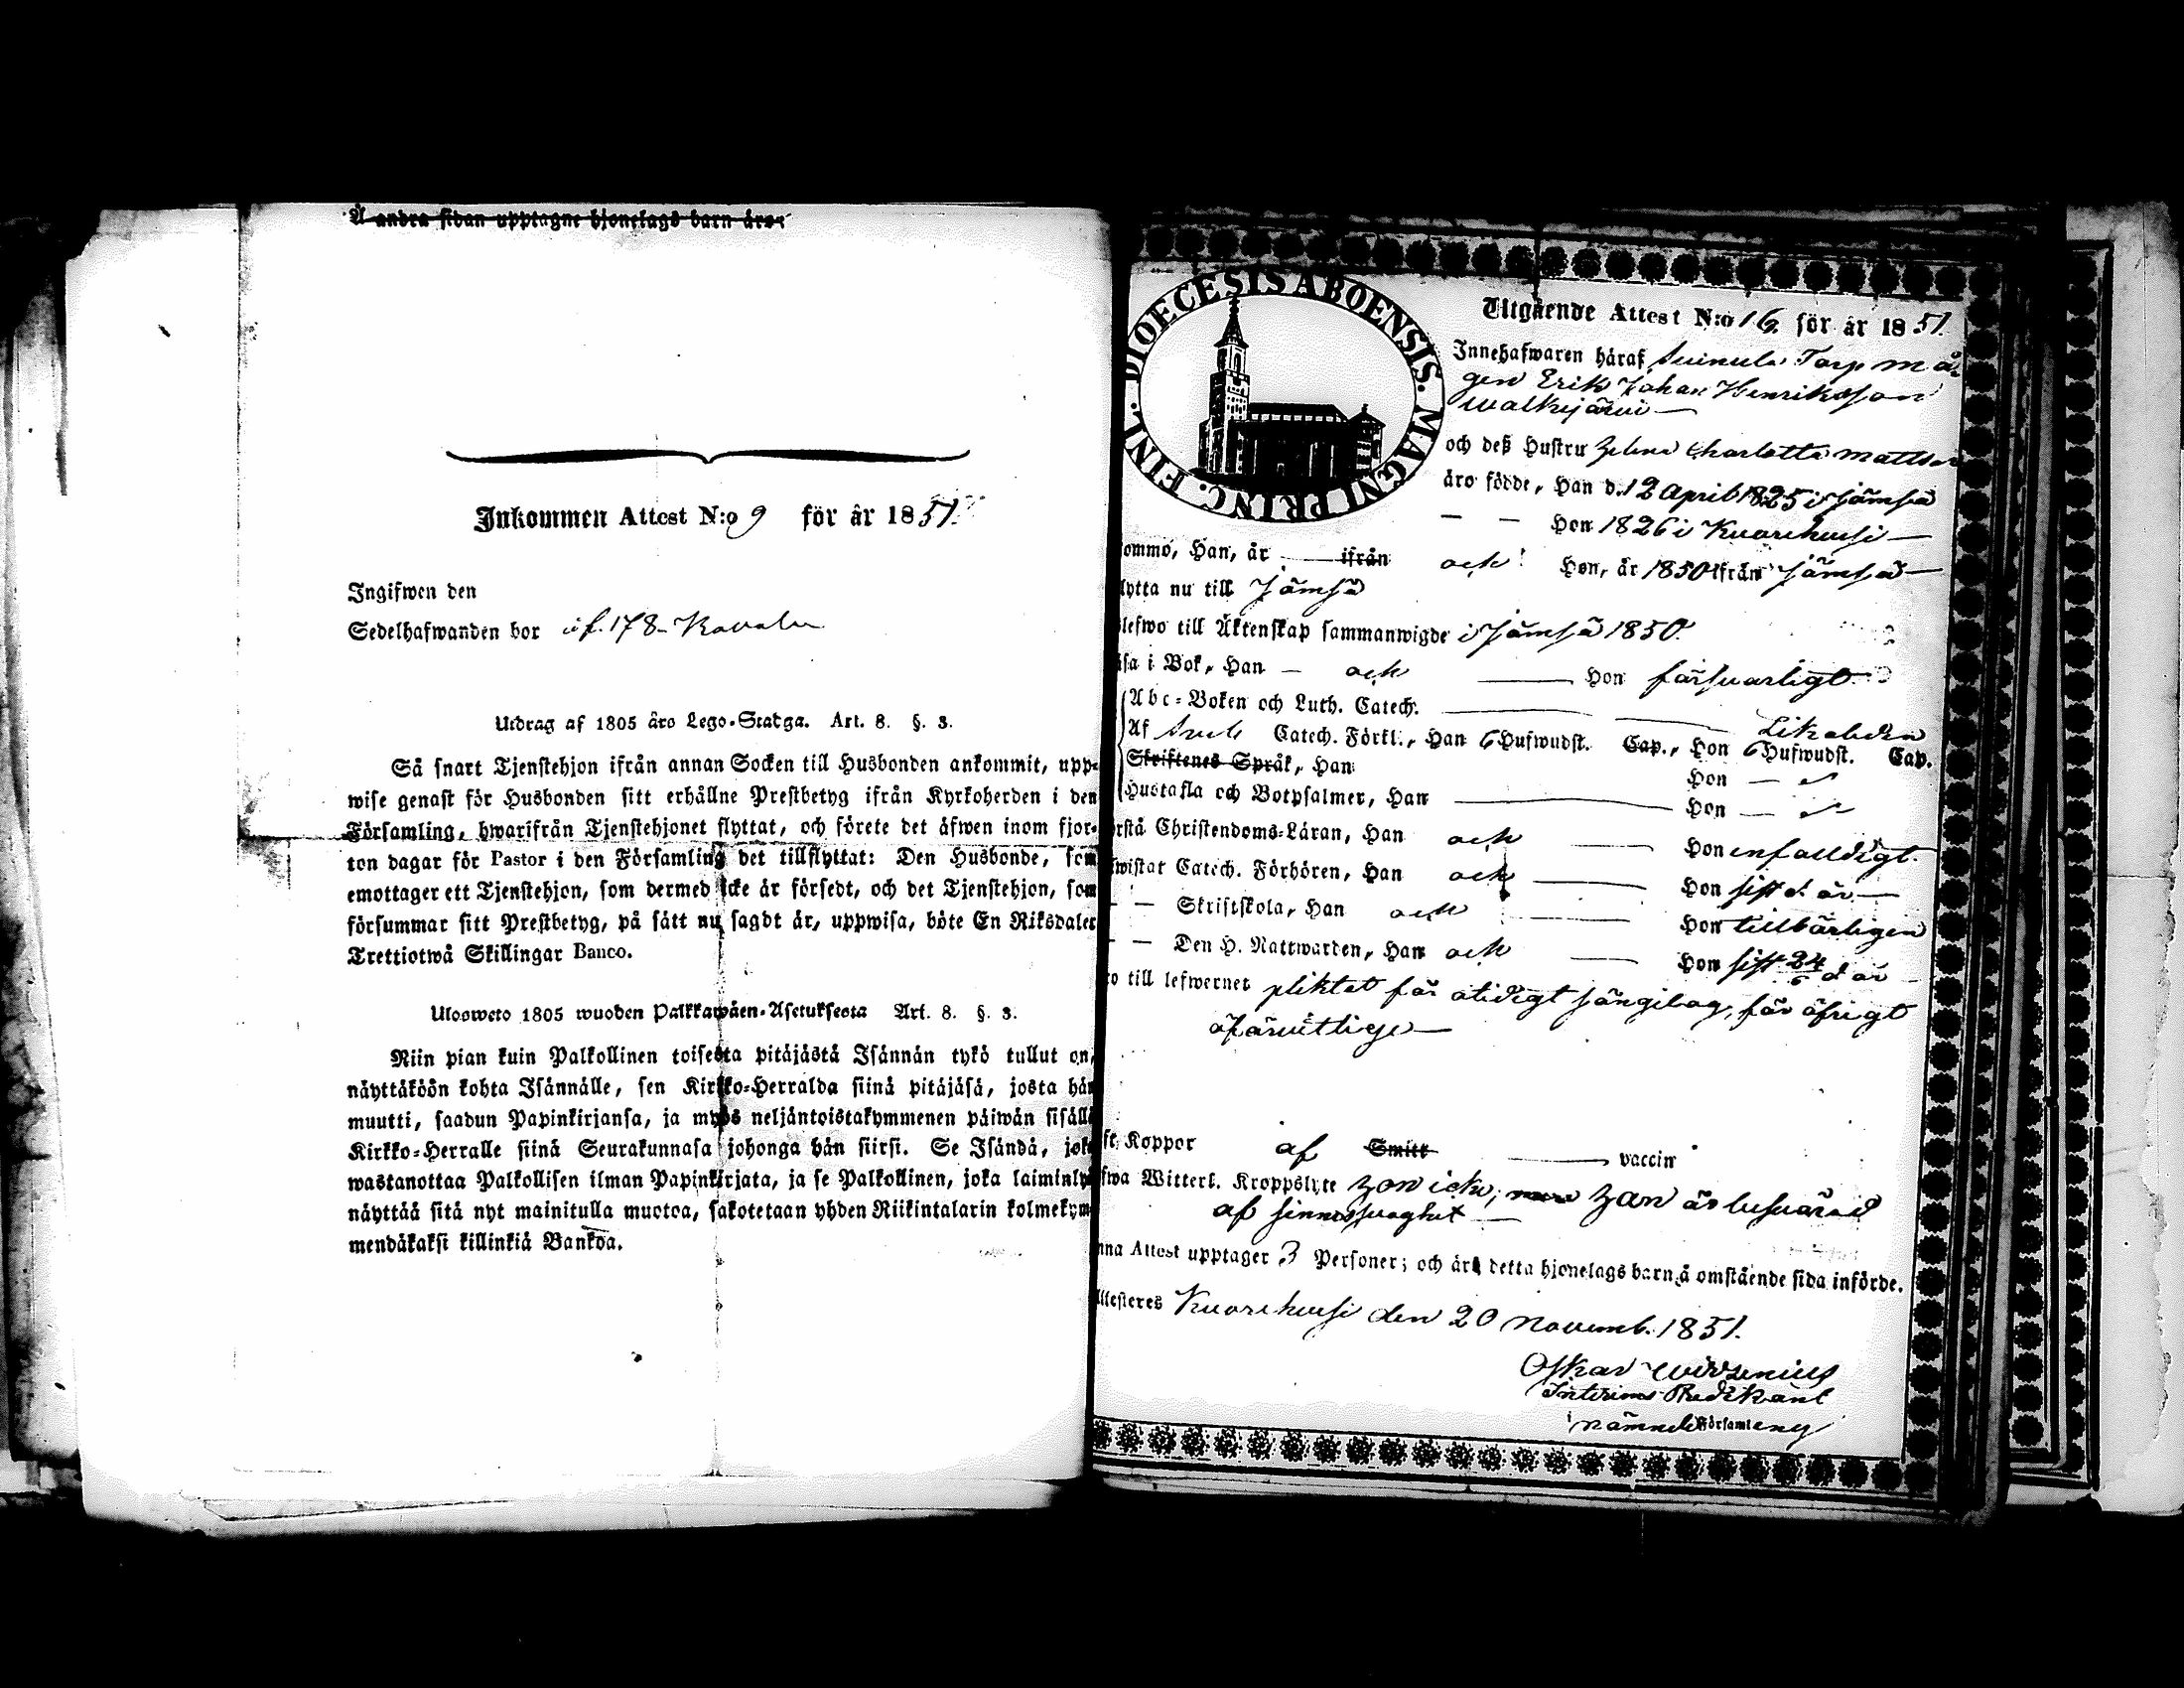 Å andra sidan upptagne hjonelags barn äro:
Inkommen Attest N:o 9 för år 1851.
Ingifwen den
Sedelhafwanden bor i f. 178
Utdrag af 1805 års Lego-Stadga. Art. 8. §. 3.
Så snart Tjenstehjon ifrån annan Socken till Husbonden ankommit, upp-
wise genast för Husbonden sitt erhållne Prestbetyg ifrån Kyrkoherden i den
Församling, hwarifrån Tjenstehjonet flyttat, och förete det äfwen inom fjor-
ton dagar för Pastor i den Församling det tillflyttat: Den Husbonde, som
emottager ett Tjenstehjon, som dermed icke är försedt, och det Tjenstehjon, som
försummar sitt Prestbetyg, på sätt nu sagdt är, uppwisa, böte En Riksdaler
Trettiotwå Skillingar Banco.
Ulosweto 1805 wuoden Palkkawäen-Asetuksesta Art. 8. §. 3.
Niin pian kuin Palkollinen toisesta pitäjästä Isännän tykö tullut on,
näyttäköön kohta Isännälle, sen Kirkko-Herralda siinä pitäjäsä, josta hän
muutti, saadun Papinkirjansa, ja myös neljäntoistakymmenen päiwän sisällä
Kirkko-Herralle siinä Seurakunnasa johonga hän siirsi. Se Isändä, joka
wastanottaa Palkollisen ilman Papinkirjata, ja se Palkollinen, joka laiminlyö
näyttää sitä nyt mainitulla muotoa, sakotetaan yhden Riikintalarin kolmekym-
mendäkaksi killinkiä Bankoa.
DIOECESIS ABOENSIS. MAGNI PRINC. FINL.
Utgående Attest N:o 16 för år 1851.
Innehafwaren häraf Suinula Torp må-
gen Erik Johan Henriksson
Walkejärvi
och deß Hustru Helena Charlotta Mattsdr
äro födde, Han d. 12 April 1825 i Jämsä
— — Hon 1826 i Kuorehwesi —
komme, Han, år — ifrån och Hon, år 1850 ifrån Jämsä —
flytta nu till Jämsä
blefwo till Äktenskap sammanwigde i Jämsä 1850.
läsa i Bok, Han — och — Hon försvarligt
Abc-Boken och Luth. Catech. —
Af Svebi Catech. Förkl., Han 6 Hufwudst. Cap., Hon 6 Hufwudst. Cap.
Skriftenes Språk, Han Hon —
Hustafla och Botpsalmer, Han — Hon —
förstå Christendoms-Läran, Han och — Hon enfaldigt.
bewistat Catech. Förhören, Han och — Hon sist d. år —
— — Skriftskola, Han och — Hon tillbörligen
— — Den H. Nattwarden, Han och — Hon sist 24/6 d. år
äro till lefwernet pliktat för otidigt sängelag, för öfrigt
oförvitlige —
haft Koppor af Smitt — vaccin
hafwa Witterl. Kroppslyte Hon icke; Han är besvärad
af sinnessvaghet —
Denna Attest upptager 3 Personer; och äro detta hjonelags barn å omstående sida införde.
Attesteres Kuorehwesi den 20 Novemb. 1851.
Oskar Wirzenius
Interims Predikant
i nämnde Församling